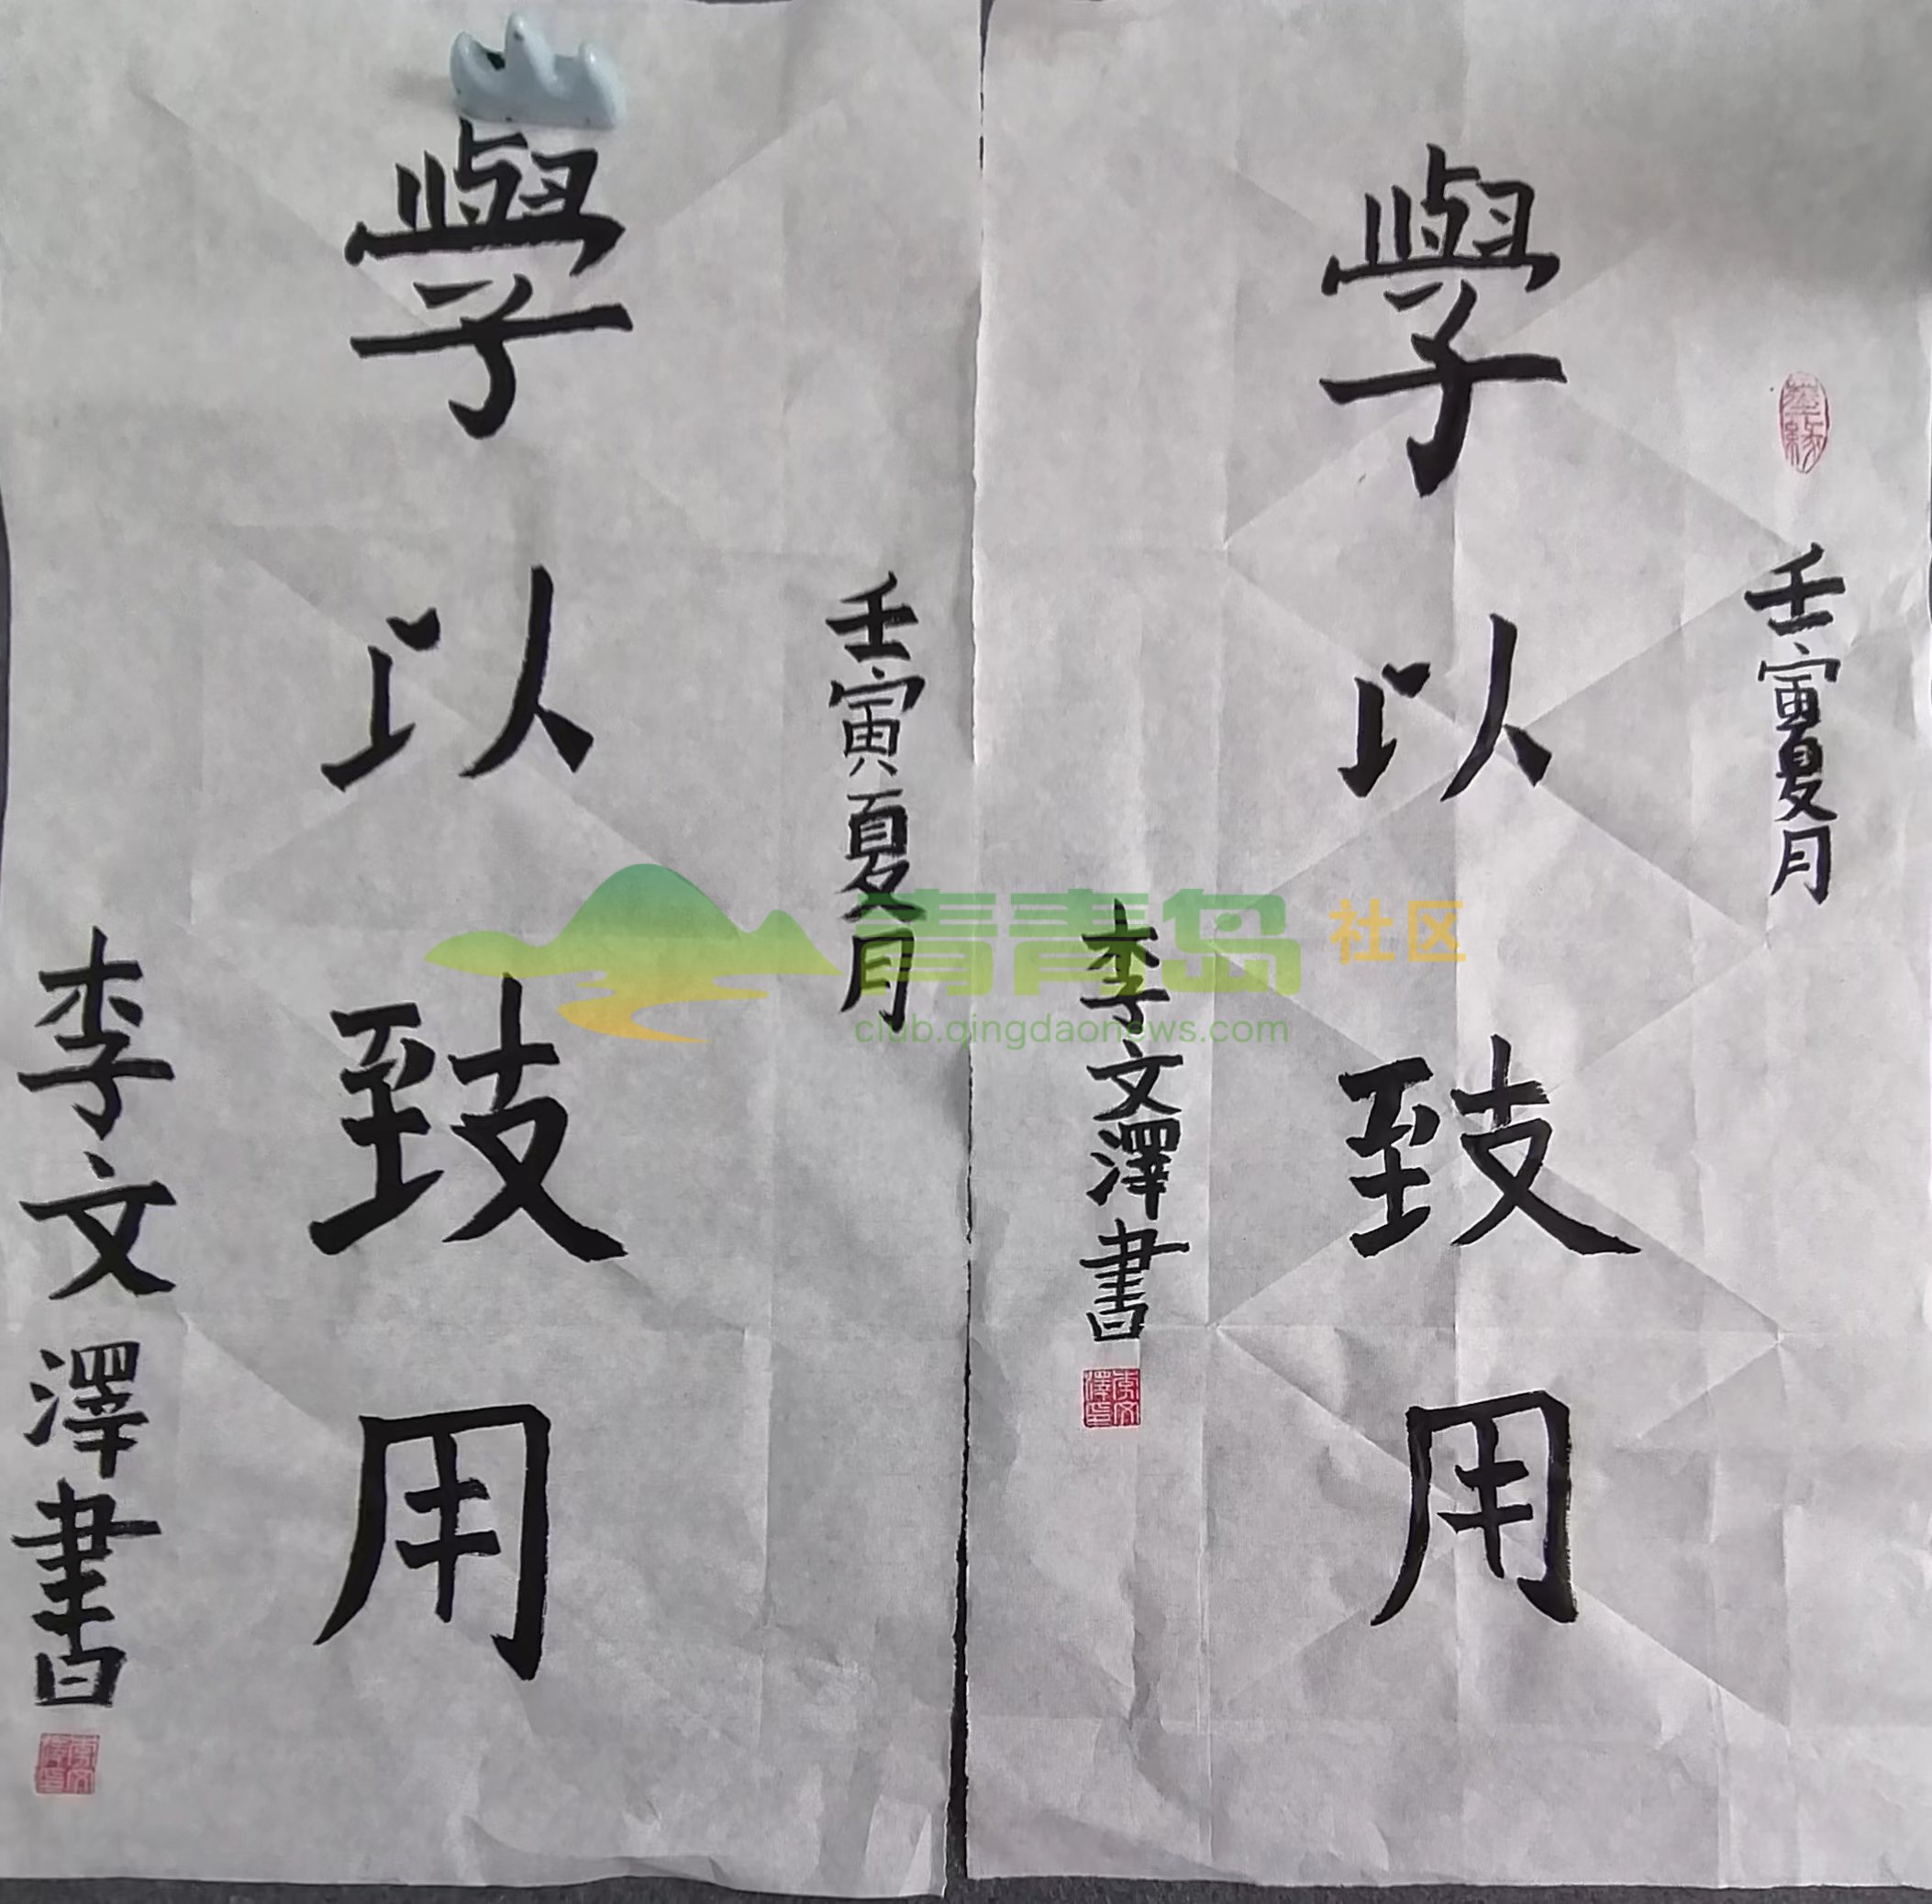 壬寅夏月
學以致用
李文澤書
壬寅夏月
學以致用
李文澤書
李文澤印
青青岛 社区
club.qingdaonews.com